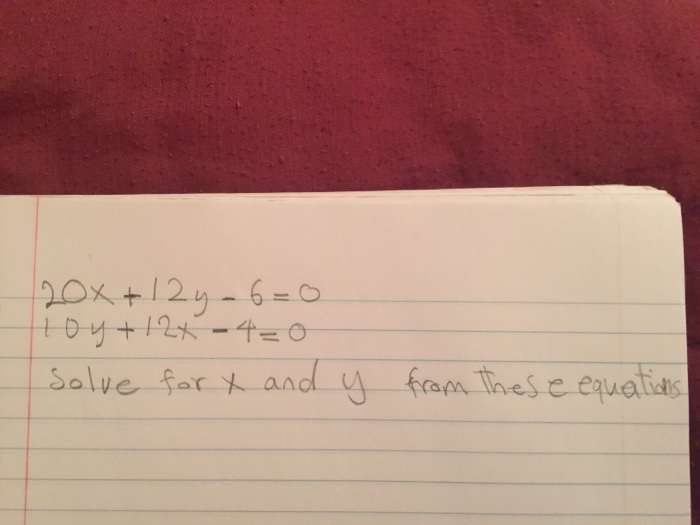 20x + 12y - 6 = 0
10y + 12x - 4 = 0
Solve for x and y from these equations